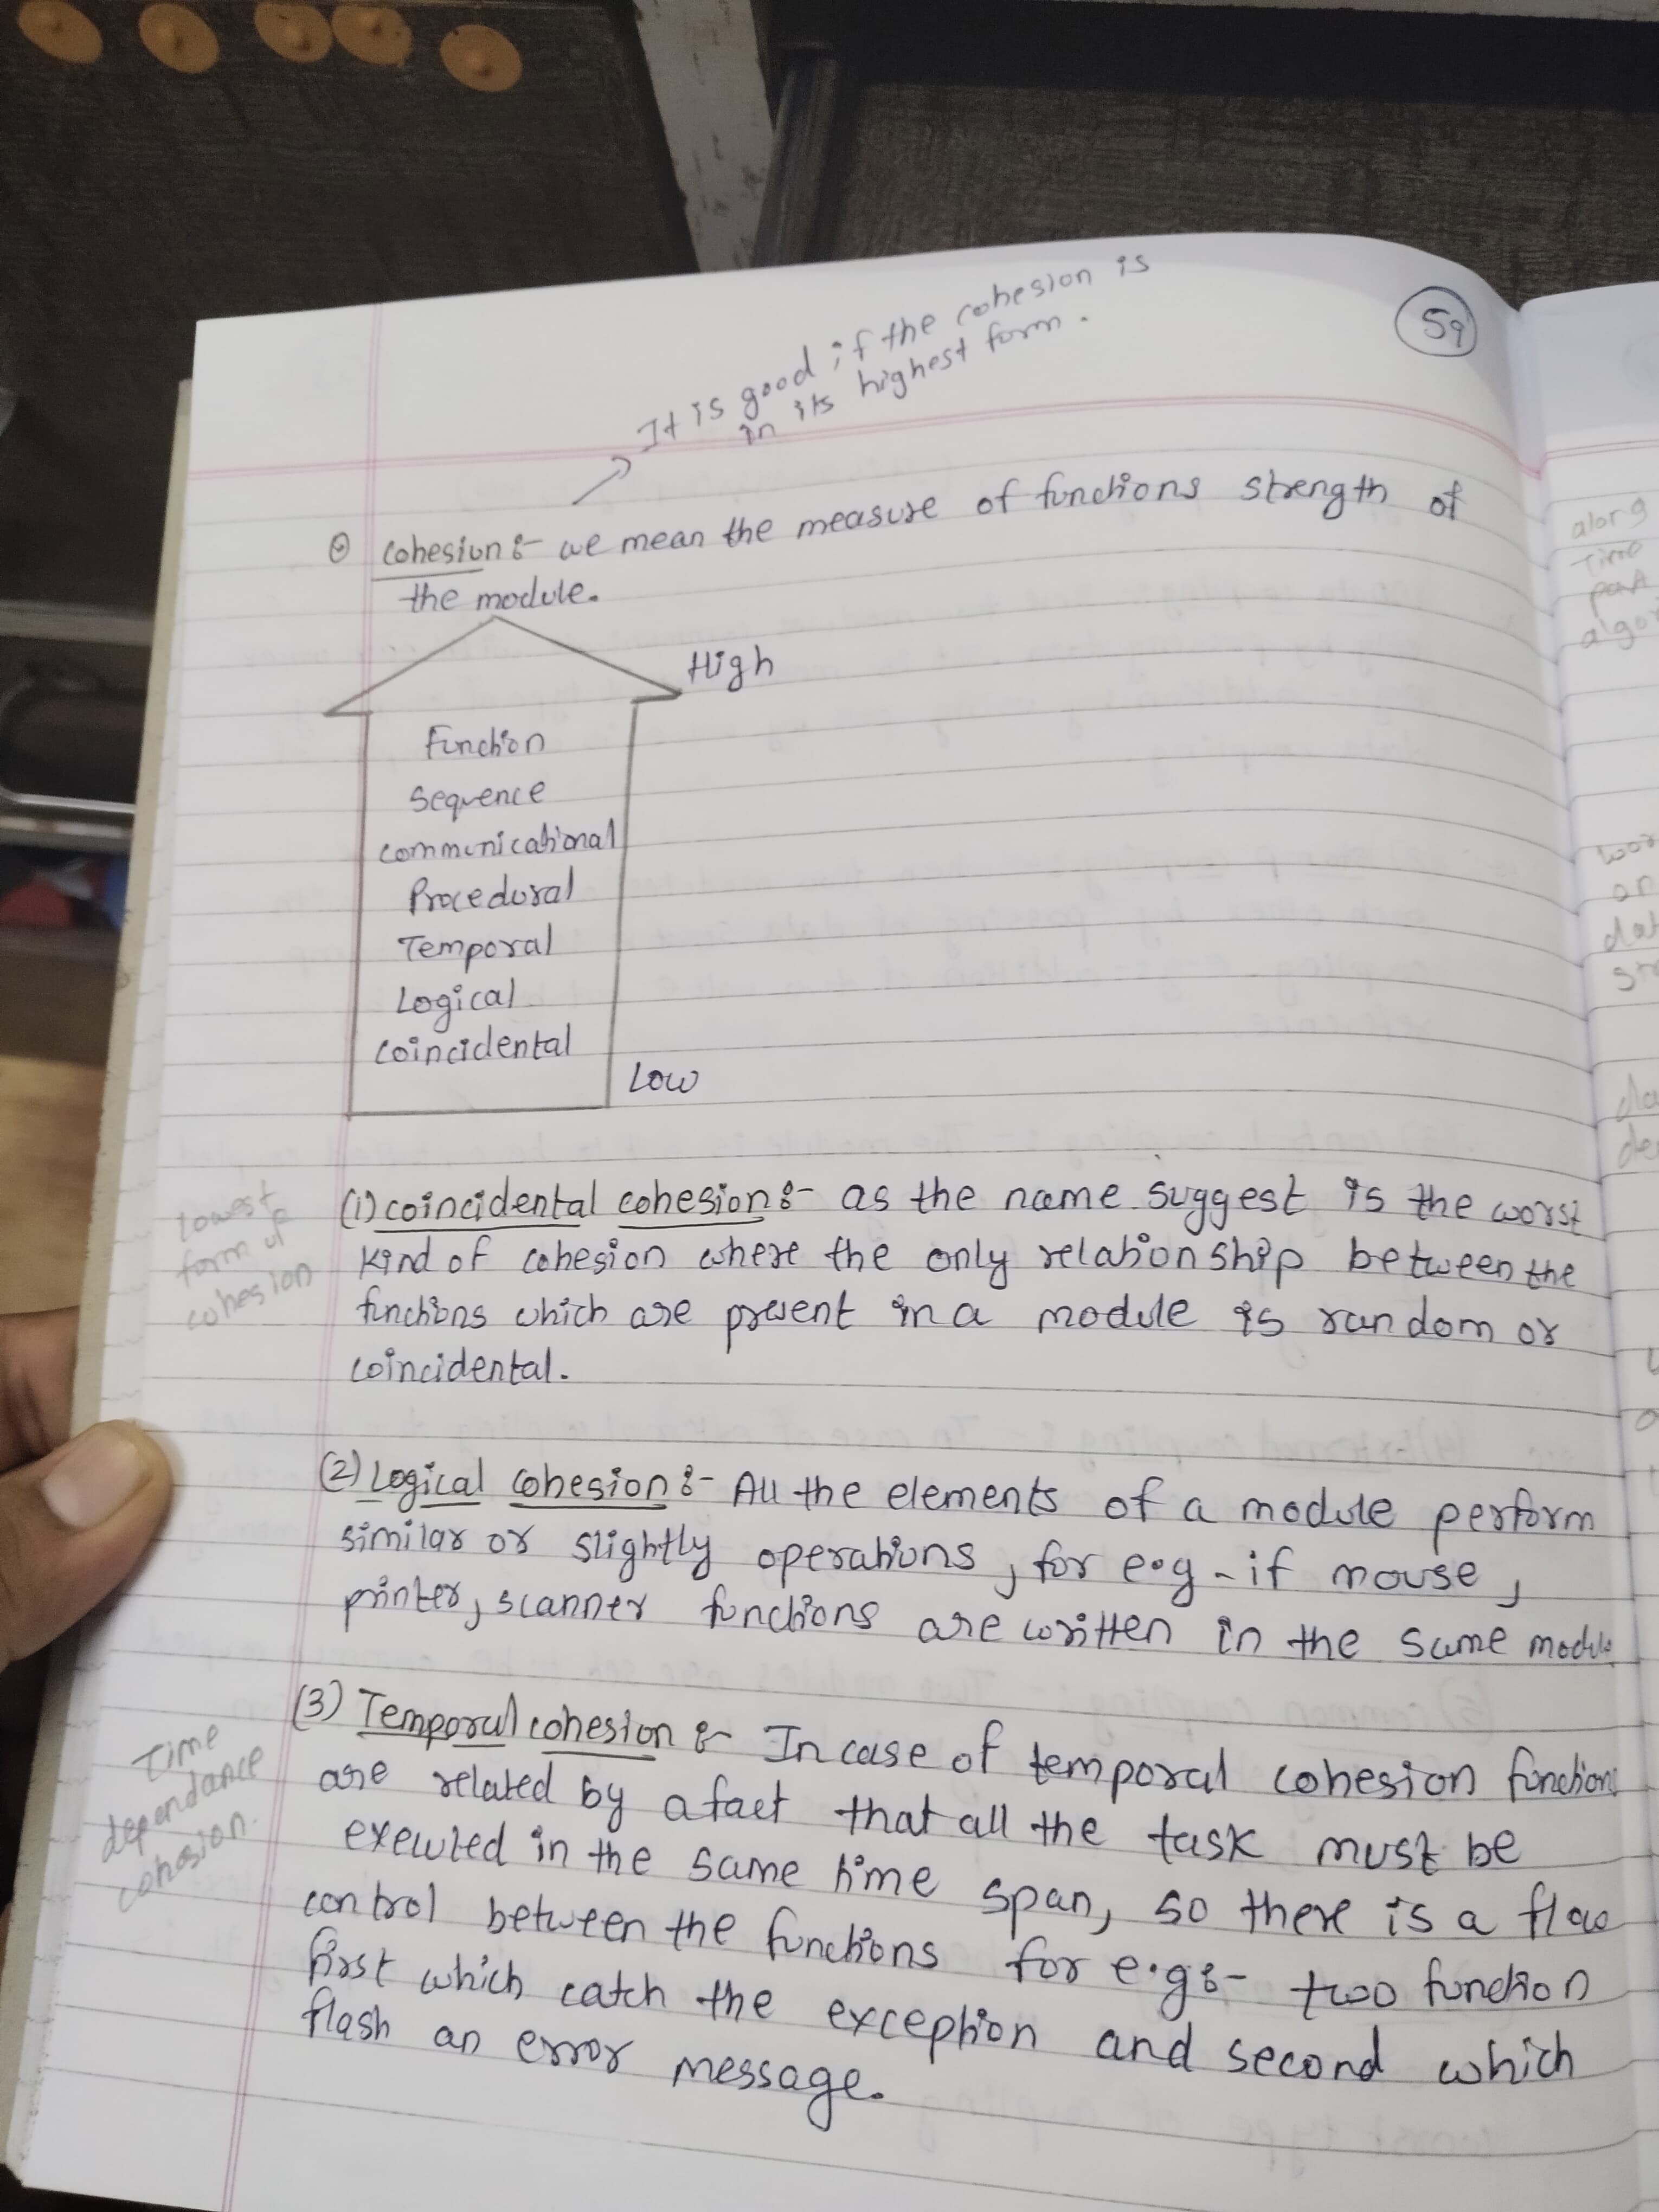 It is good if the cohesion is
in its highest form.
59
cohesion :- we mean the measure of functions strength of
the module.
High
Function
Sequence
communicational
Procedural
Temporal
Logical
coincidental
Low
(1) coincidental cohesion :- as the name suggest is the worst
kind of cohesion where the only relationship between the
functions which are present in a module is random or
coincidental.
lowest
form of
cohesion
(2) Logical cohesion :- All the elements of a module perform
similar or slightly operations, for e.g - if mouse,
printer, scanner functions are written in the same module
(3) Temporal cohesion :- In case of temporal cohesion functions
are related by a fact that all the task must be
executed in the same time span, so there is a flow
control between the functions for e.g :- two function
first which catch the exception and second which
flash an error message.
Time
dependance
cohesion.
along
Time
part